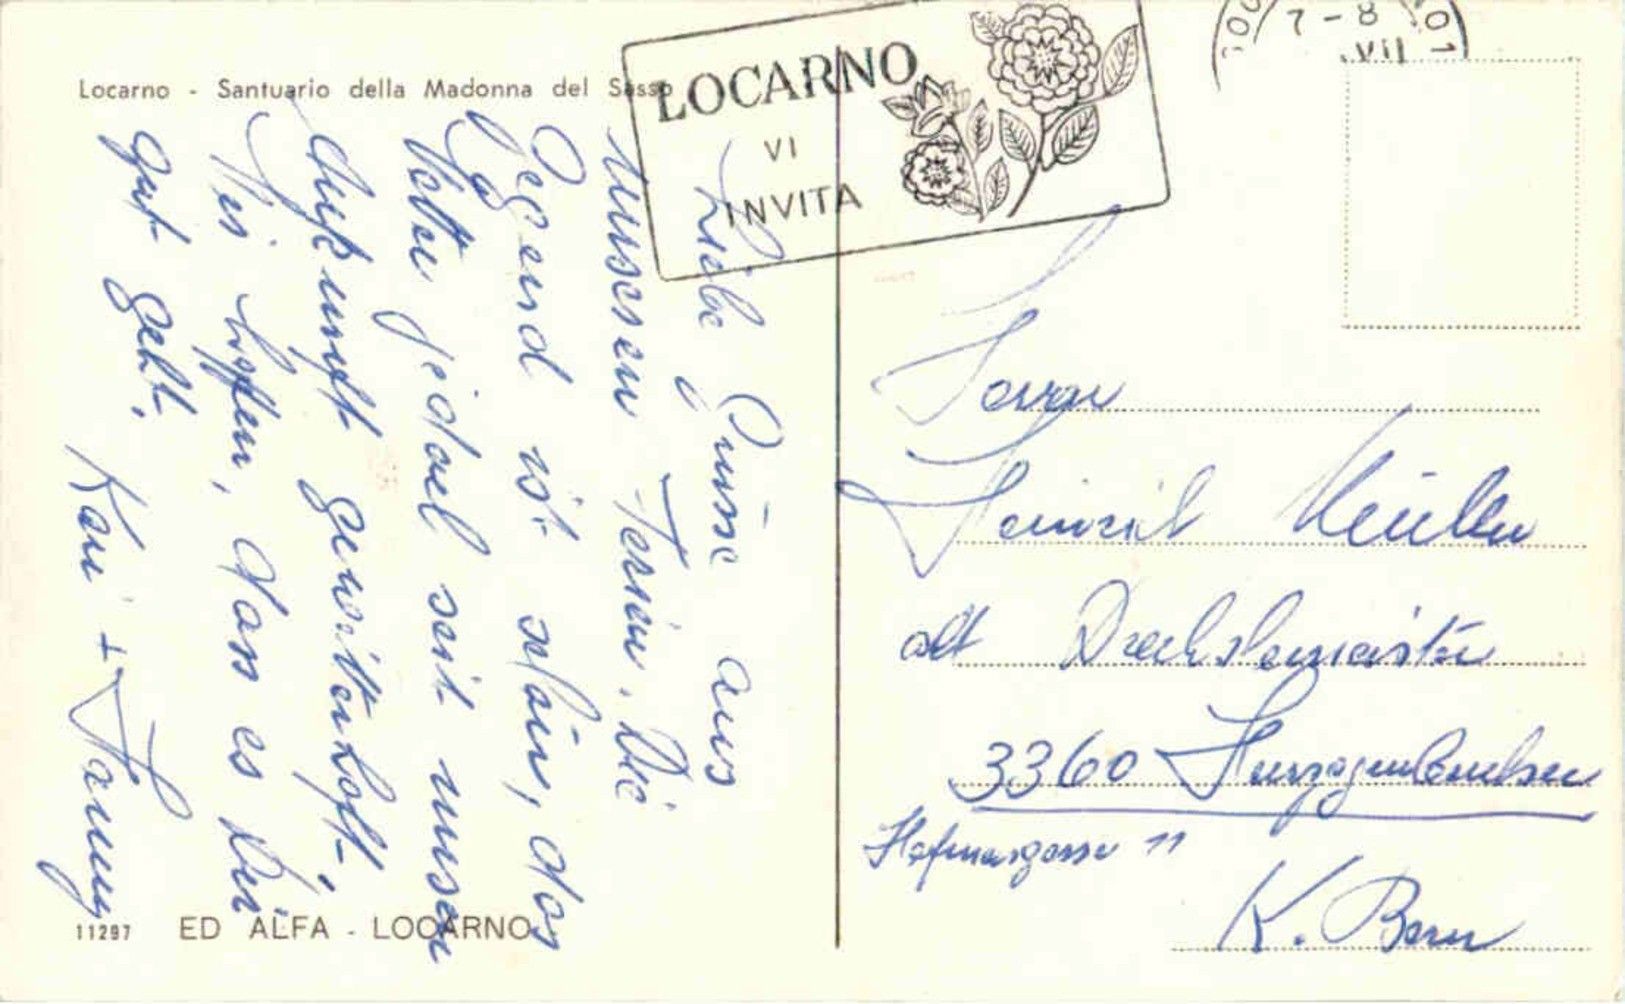 Locarno - Santuario della Madonna del Sasso
LOCARNO
VI
INVITA
7-8
VII
Liebe Grüsse aus
unserem Tessin. Die
Gegend ist schön, das
Wetter jedoch seit unserer
Ankunft gewitterhaft.
Wir hoffen, dass es Dir
gut geht.
Kari + Fanny
11297
ED ALFA - LOCARNO
Herrn
Heinrich
alt Drechslermeister
3360 Herzogenbuchsee
Hofmattgasse 11
K. Bern